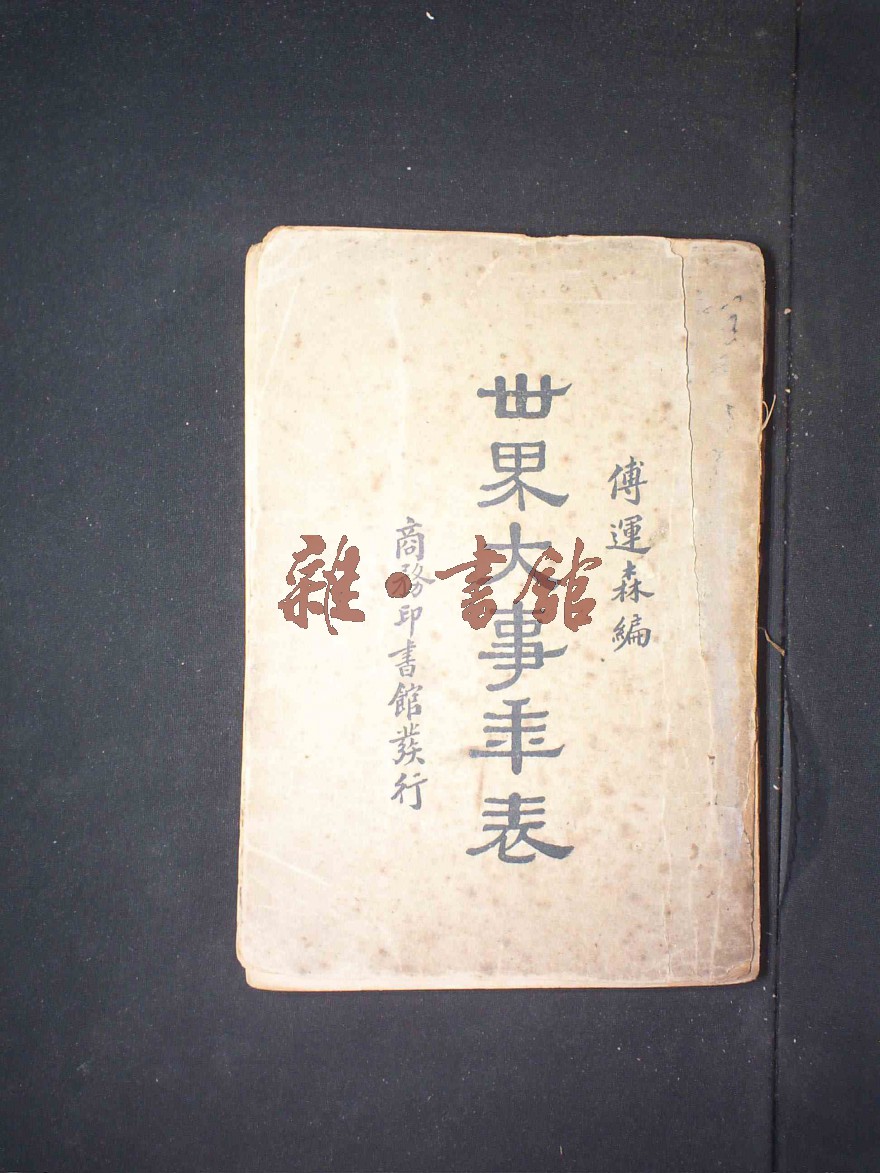 傅運森編
世界大事年表
商務印書館發行
雜·書館